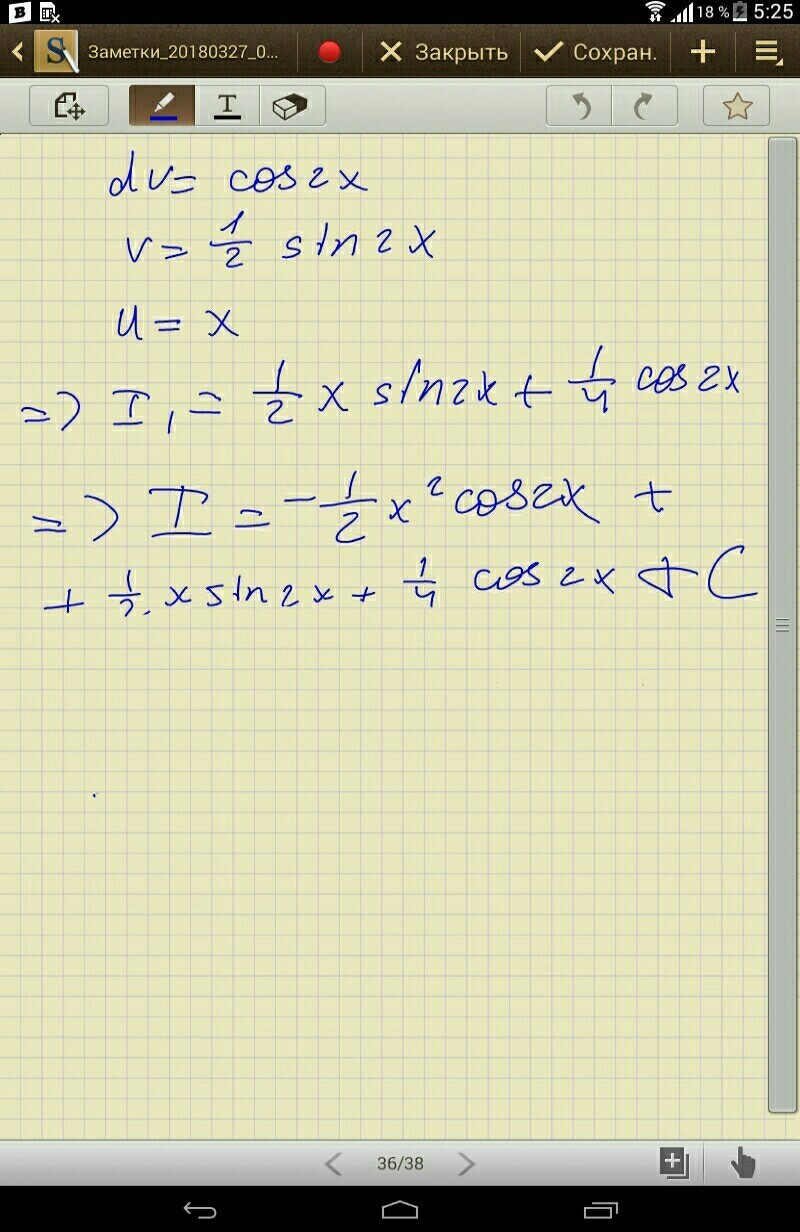 18 % 5:25
Заметки_20180327_0... Закрыть Сохран.
T
dv= cos2x
v= 1/2 sin2x
u= x
=> I₁= 1/2 x sin2x + 1/4 cos2x
=> I = -1/2 x² cos2x +
+ 1/2. x sin2x + 1/4 cos2x + C
36/38